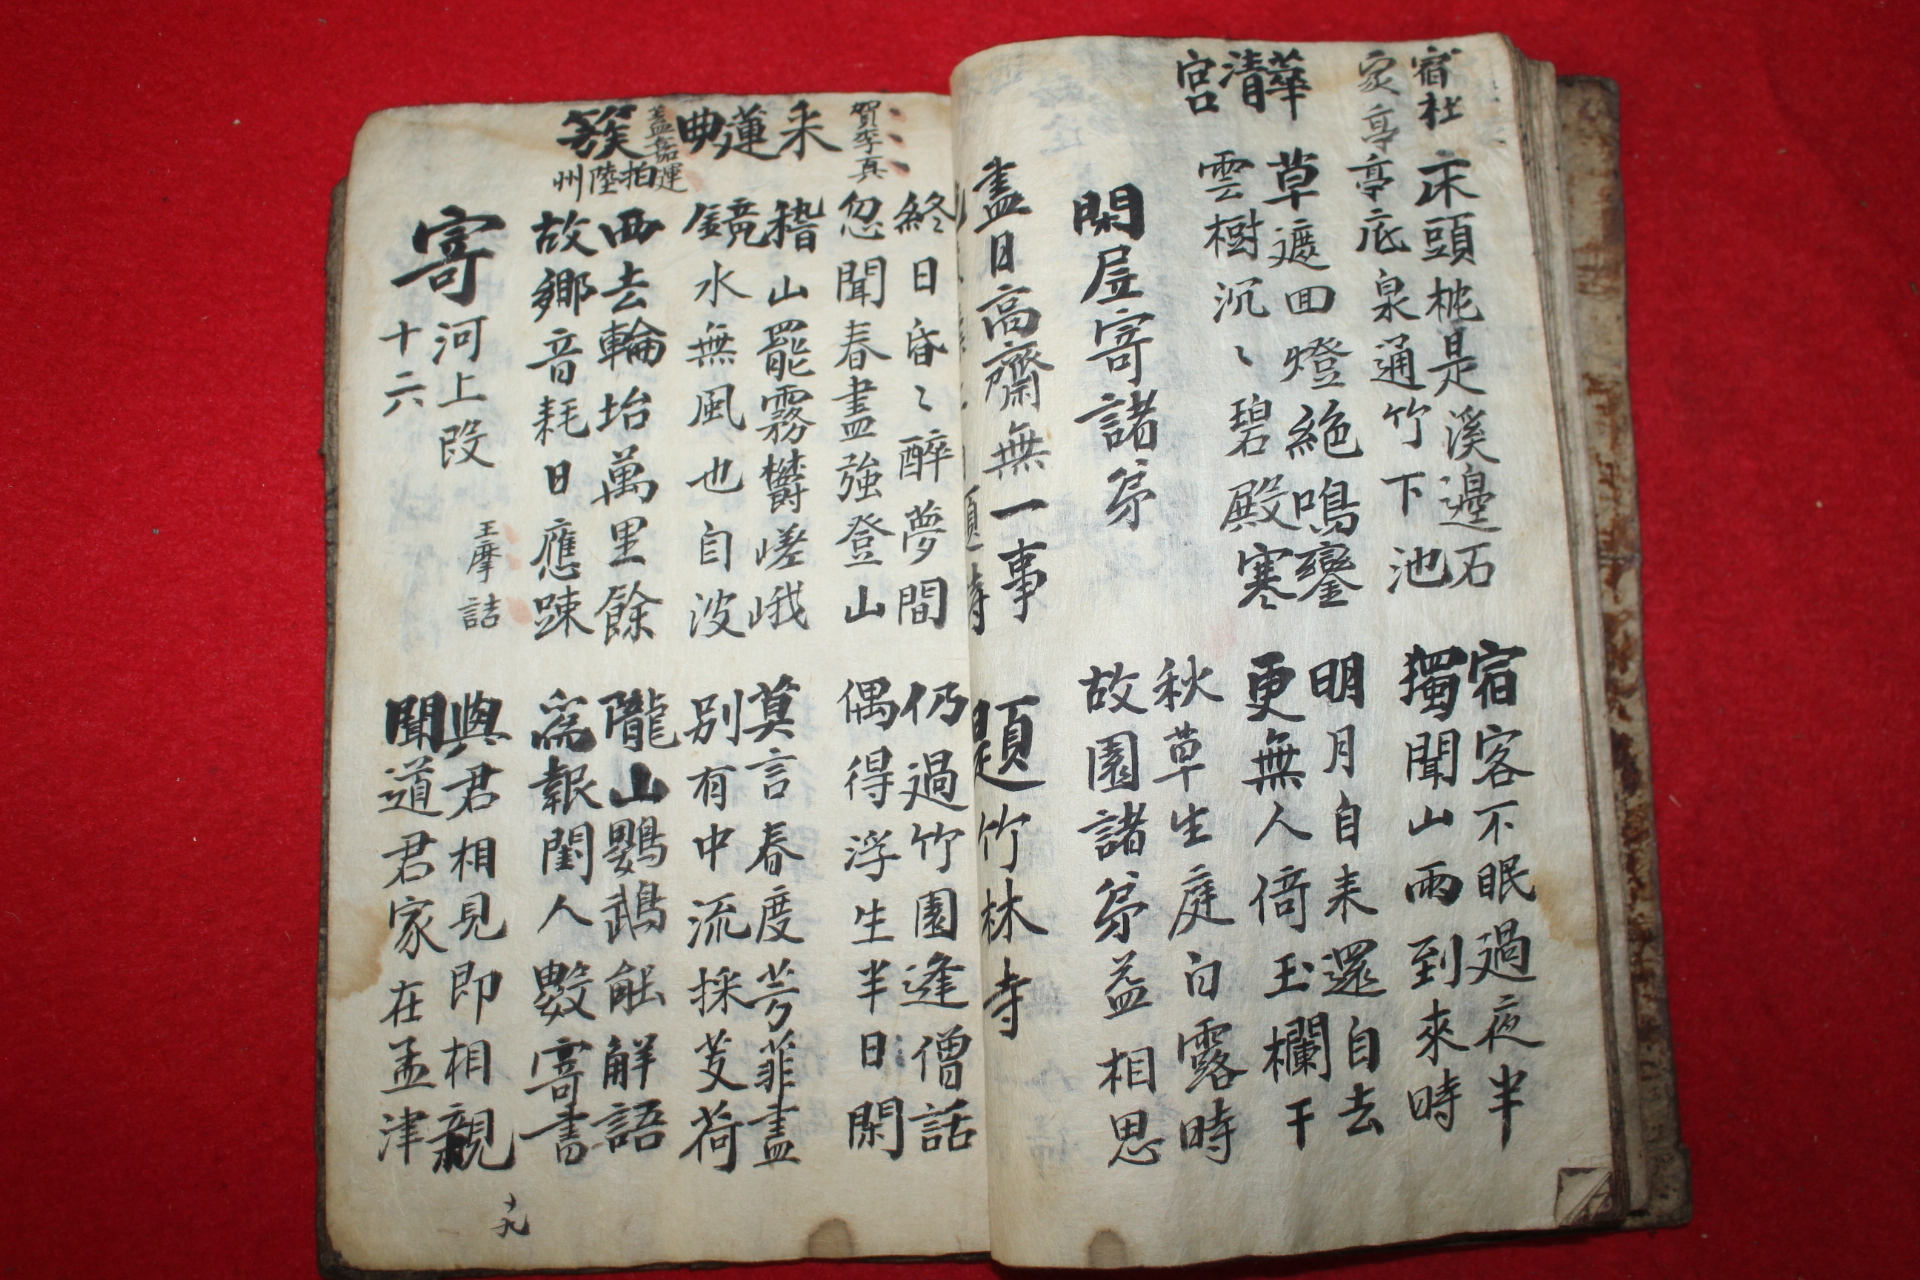 宿杜
家亭
床頭枕是溪邊石
宿客不眠過夜半
亭底泉通竹下池
獨聞山雨到來時
華清宮
草遮回燈絶鳴鑾
明月自来還自去
雲樹沉〻碧殿寒
更無人倚玉欄干
秋草生庭白露時
閑居寄諸弟
故園諸弟益相思
盡日高齋無一事
題竹林寺
終日昏〻醉夢間
仍過竹園逢僧話
忽聞春盡強登山
偶得浮生半日閑
賀季真
采蓮曲
稽山罷霧欝嵯峨
莫言春度芳菲盡
鏡水無風也自波
別有中流採芰荷
蓋嘉運
簇拍陸州
西去輪坮萬里餘
隴山鸚鵡能解語
故郷音耗日應踈
爲報閨人數寄書
寄河上段
十六
王摩詰
與君相見即相親
聞道君家在孟津
十九